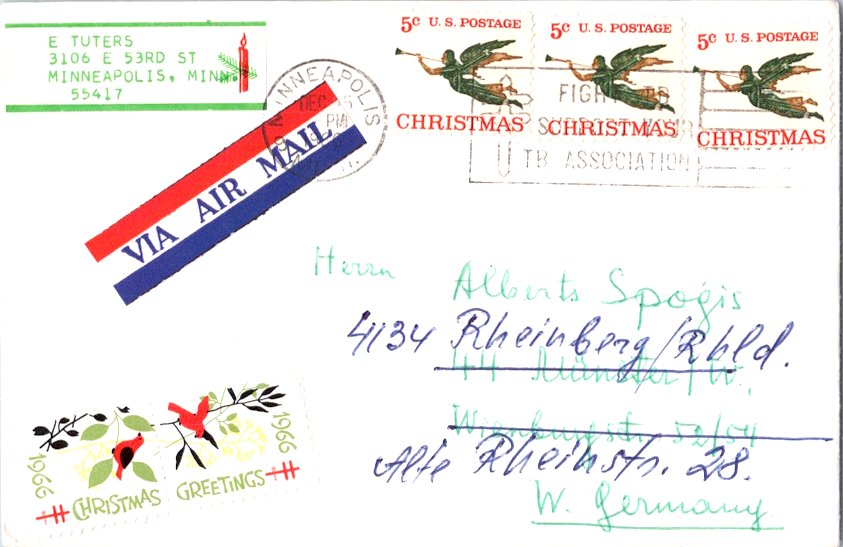 E TUTERS
3106 E 53RD ST
MINNEAPOLIS, MINN.
55417
5c U.S. POSTAGE
CHRISTMAS
5c U.S. POSTAGE
CHRISTMAS
5c U.S. POSTAGE
CHRISTMAS
MINNEAPOLIS
DEC
PM
FIGHT TB
SUPPORT YOUR
TB ASSOCIATION
VIA AIR MAIL
Herrn
Alberts Spoģis
4134 Rheinberg/Rhld.
44 Münster/W.
Wienburgstr. 52/54
Alte Rheinstr. 28.
W. Germany
1966 CHRISTMAS
GREETINGS 1966